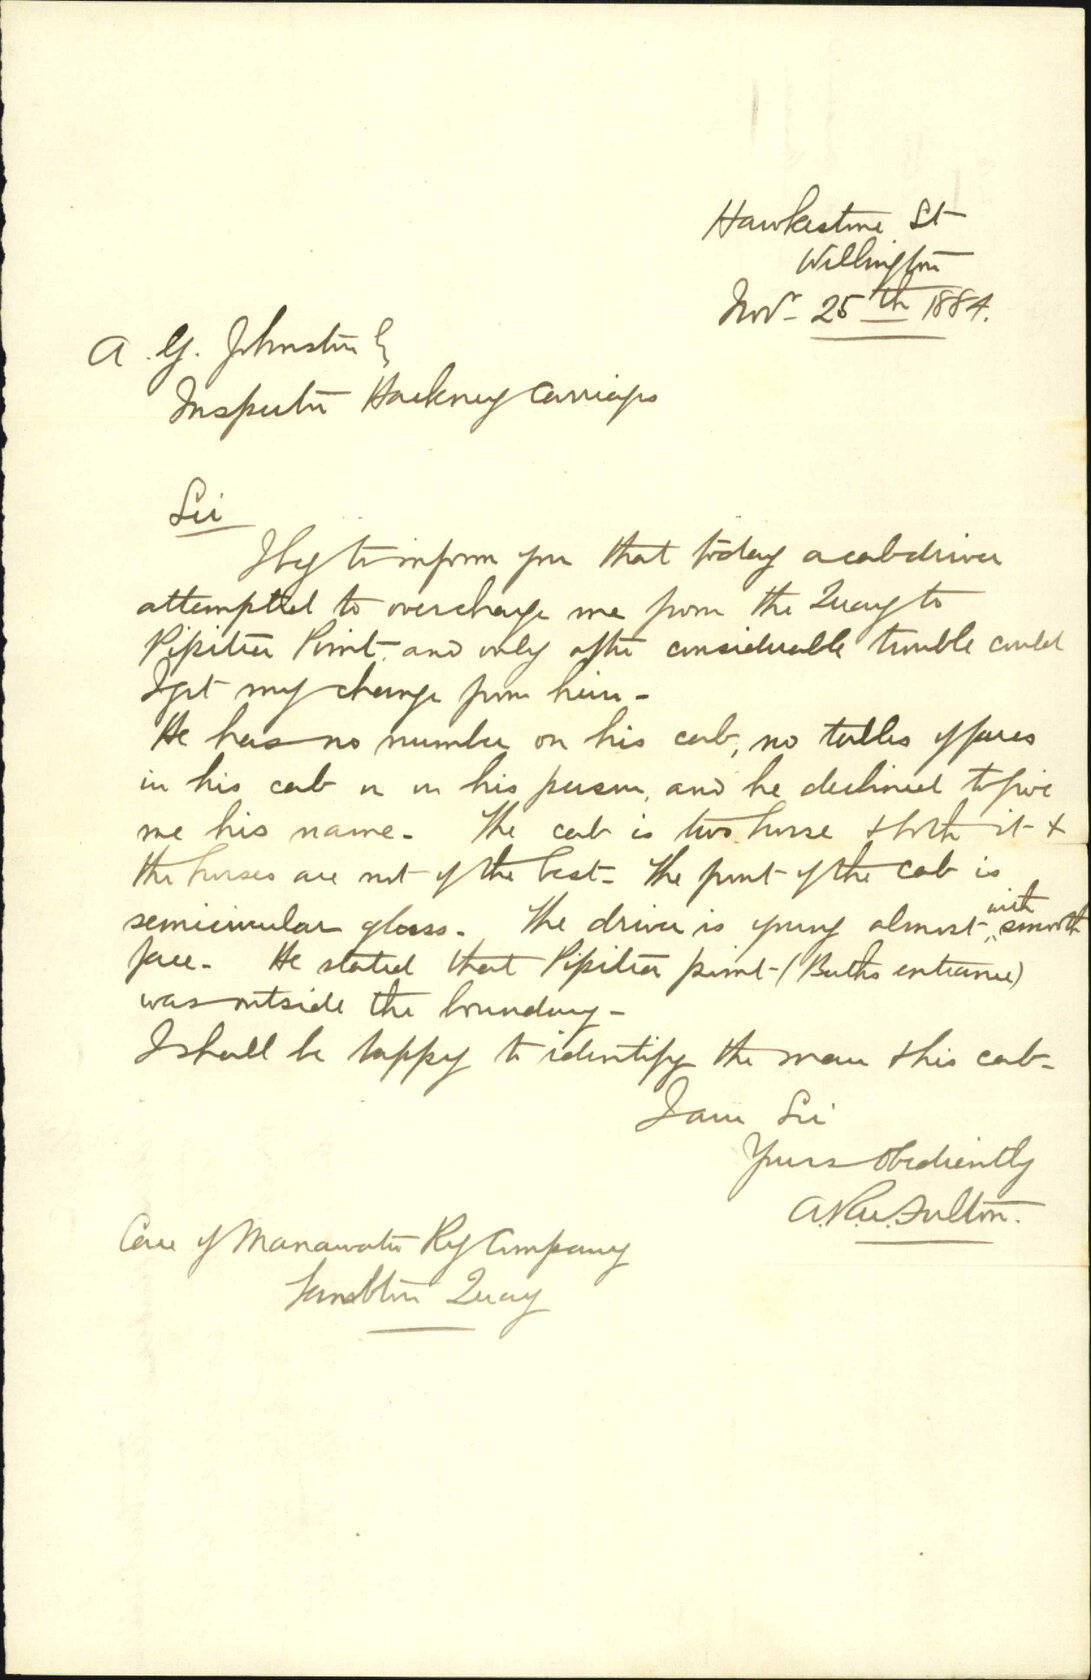 Hawkestone St
Wellington
Novr 25th 1884.
A. G. Johnston Esq
Inspector Hackney Carriages
Sir
I beg to inform you that today a cabdriver
attempted to overcharge me from the Quay to
Pipitea Point, and only after considerable trouble could
I get my change from him -
He has no number on his cab, no tables of fares
in his cab or on his person, and he declined to give
me his name - The cab is two horse & both it &
the horses are not of the best - The front of the cab is
semicircular glass - The driver is young almost with smooth
face - He stated that Pipitea point - (Baths entrance)
was outside the boundary -
I shall be happy to identify the man & his cab -
I am Sir
Yours obediently
A. Fulton.
Care of Manawatu Ry Company
Lambton Quay